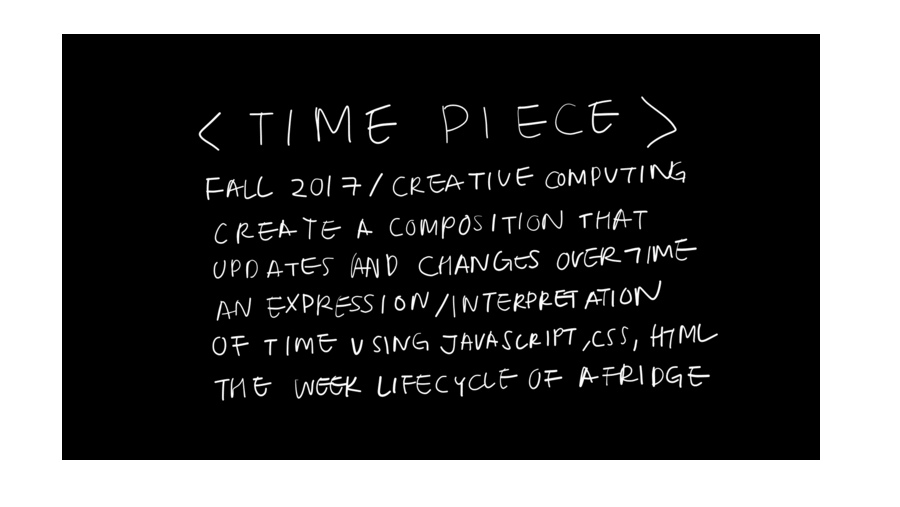 < TIME PIECE >
FALL 2017 / CREATIVE COMPUTING
CREATE A COMPOSITION THAT
UPDATES AND CHANGES OVERTIME
AN EXPRESSION/INTERPRETATION
OF TIME USING JAVASCRIPT, CSS, HTML
THE WEEK LIFECYCLE OF A FRIDGE